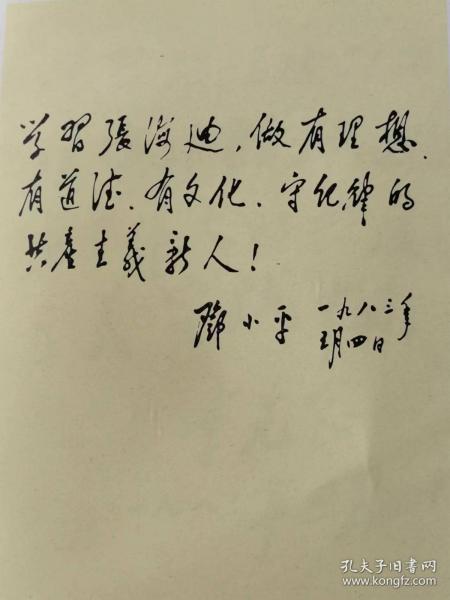 学習張海迪，做有理想、
有道法、有文化、守纪律的
共產主義新人！
鄧小平 一九八三年
五月四日
孔夫子旧书网
www.kongfz.com